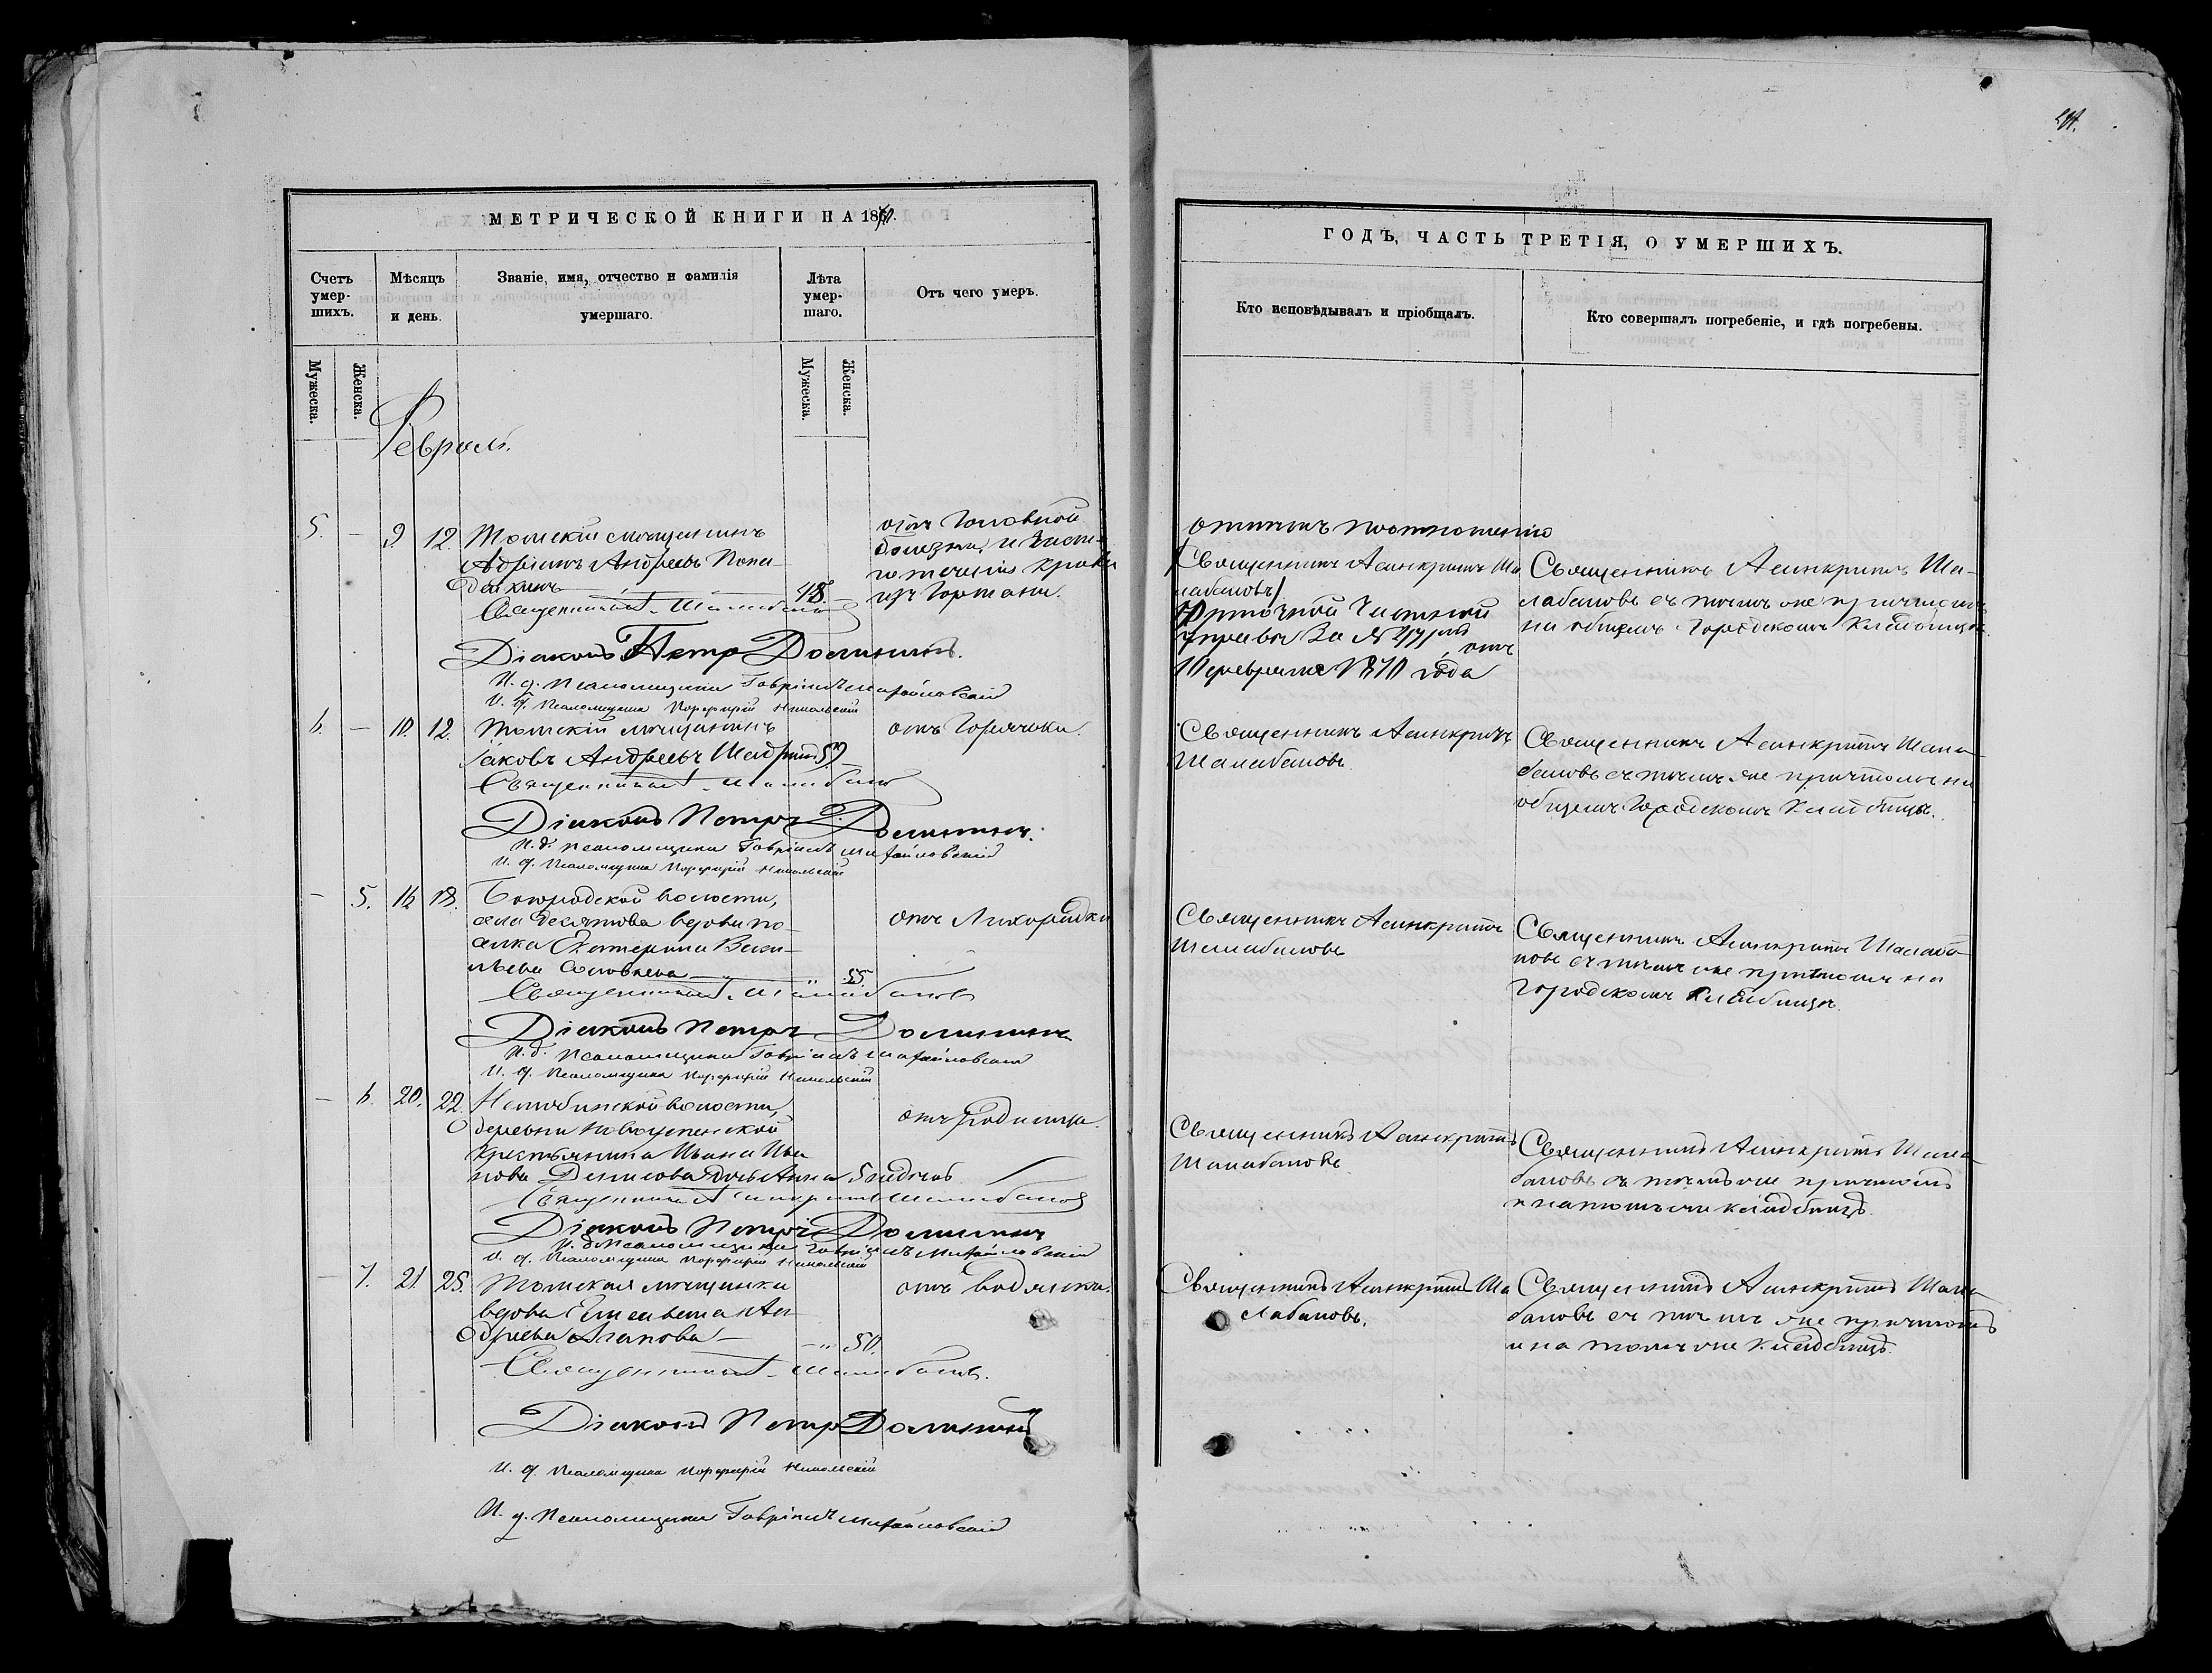 МЕТРИЧЕСКОЙ КНИГИ НА 1870.
Счетъ умер-шихъ.
Мѣсяцъ и день.
Званіе, имя, отчество и фамилія умершаго.
Лѣта умер-шаго.
Отъ чего умеръ.
Мужеска.
Женска.
Мужеска.
Женска.
Февраль.
5. — 9. 12. Томскій мѣщанинъ
Адріанъ Андреевъ
48.
отъ головной
болезни, и
течения крови
изъ гортани.
Священникъ Шалабановъ
Діаконъ Петръ Долининъ.
И. д. Псаломщика Гавріилъ Михайловскій
И. д. Псаломщика Порфирій Никольскій
6. — 10. 12. Томскій мѣщанинъ
Іаковъ Андреевъ 57
отъ Горячки.
Священникъ Шалабановъ
Діаконъ Петръ Долининъ.
И. д. Псаломщика Гавріилъ Михайловскій
И. д. Псаломщика Порфирій Никольскій
— 5. 16 18. Богородской волости,
села Десятова вдова по-
селка Екатерина Васи-
льева Соловьева — " 55.
отъ Лихорадки
Священникъ Шалабановъ
Діаконъ Петръ Долининъ
И. д. Псаломщика Гавріилъ Михайловскій
И. д. Псаломщика Порфирій Никольскій
— 6. 20. 22. Нелюбинской волости,
деревни
крестьянина Ивана Ива
нова Денисова дочь Анна 5 недѣль
отъ Родимца.
Священникъ Асинкритъ Шалабановъ
Діаконъ Петръ Долининъ
И. д. Псаломщика Гавріилъ Михайловскій
И. д. Псаломщика Порфирій Никольскій
— 7. 21. 25. Томская мѣщанка
вдова Елисавета Ан-
дреева Агапова — " 50.
отъ водянки.
Священникъ Шалабановъ.
Діаконъ Петръ Долининъ
И. д. Псаломщика Порфирій Никольскій
И. д. Псаломщика Гавріилъ Михайловскій
ГОДЪ, ЧАСТЬ ТРЕТІЯ, О УМЕРШИХЪ.
Кто исповѣдывалъ и пріобщалъ.
Кто совершалъ погребеніе, и гдѣ погребены.
Священникъ Асинкритъ Ша
лабановъ
Частной
Управы За №
отъ
10 февраля 1870 года
Священникъ Асинкритъ Ша-
лабановъ съ тѣмъ же причтомъ
на общемъ Городскомъ Кладбищѣ.
Священникъ Асинкритъ
Шалабановъ
Священникъ Асинкритъ Шала
бановъ съ тѣмъ же причтомъ на
общемъ Городскомъ Кладбищѣ.
Священникъ Асинкритъ
Шалабановъ
Священникъ Асинкритъ Шалаба
новъ съ тѣмъ же причтомъ на
Городскомъ Кладбищѣ.
Священникъ Асинкритъ
Шалабановъ
Священникъ Асинкритъ Шала
бановъ съ тѣмъ же причтомъ
и на томъ же кладбищѣ.
Священникъ Асинкритъ Ша
лабановъ.
Священникъ Асинкритъ Шала
бановъ съ тѣмъ же причтомъ
и на томъ же Кладбищѣ.